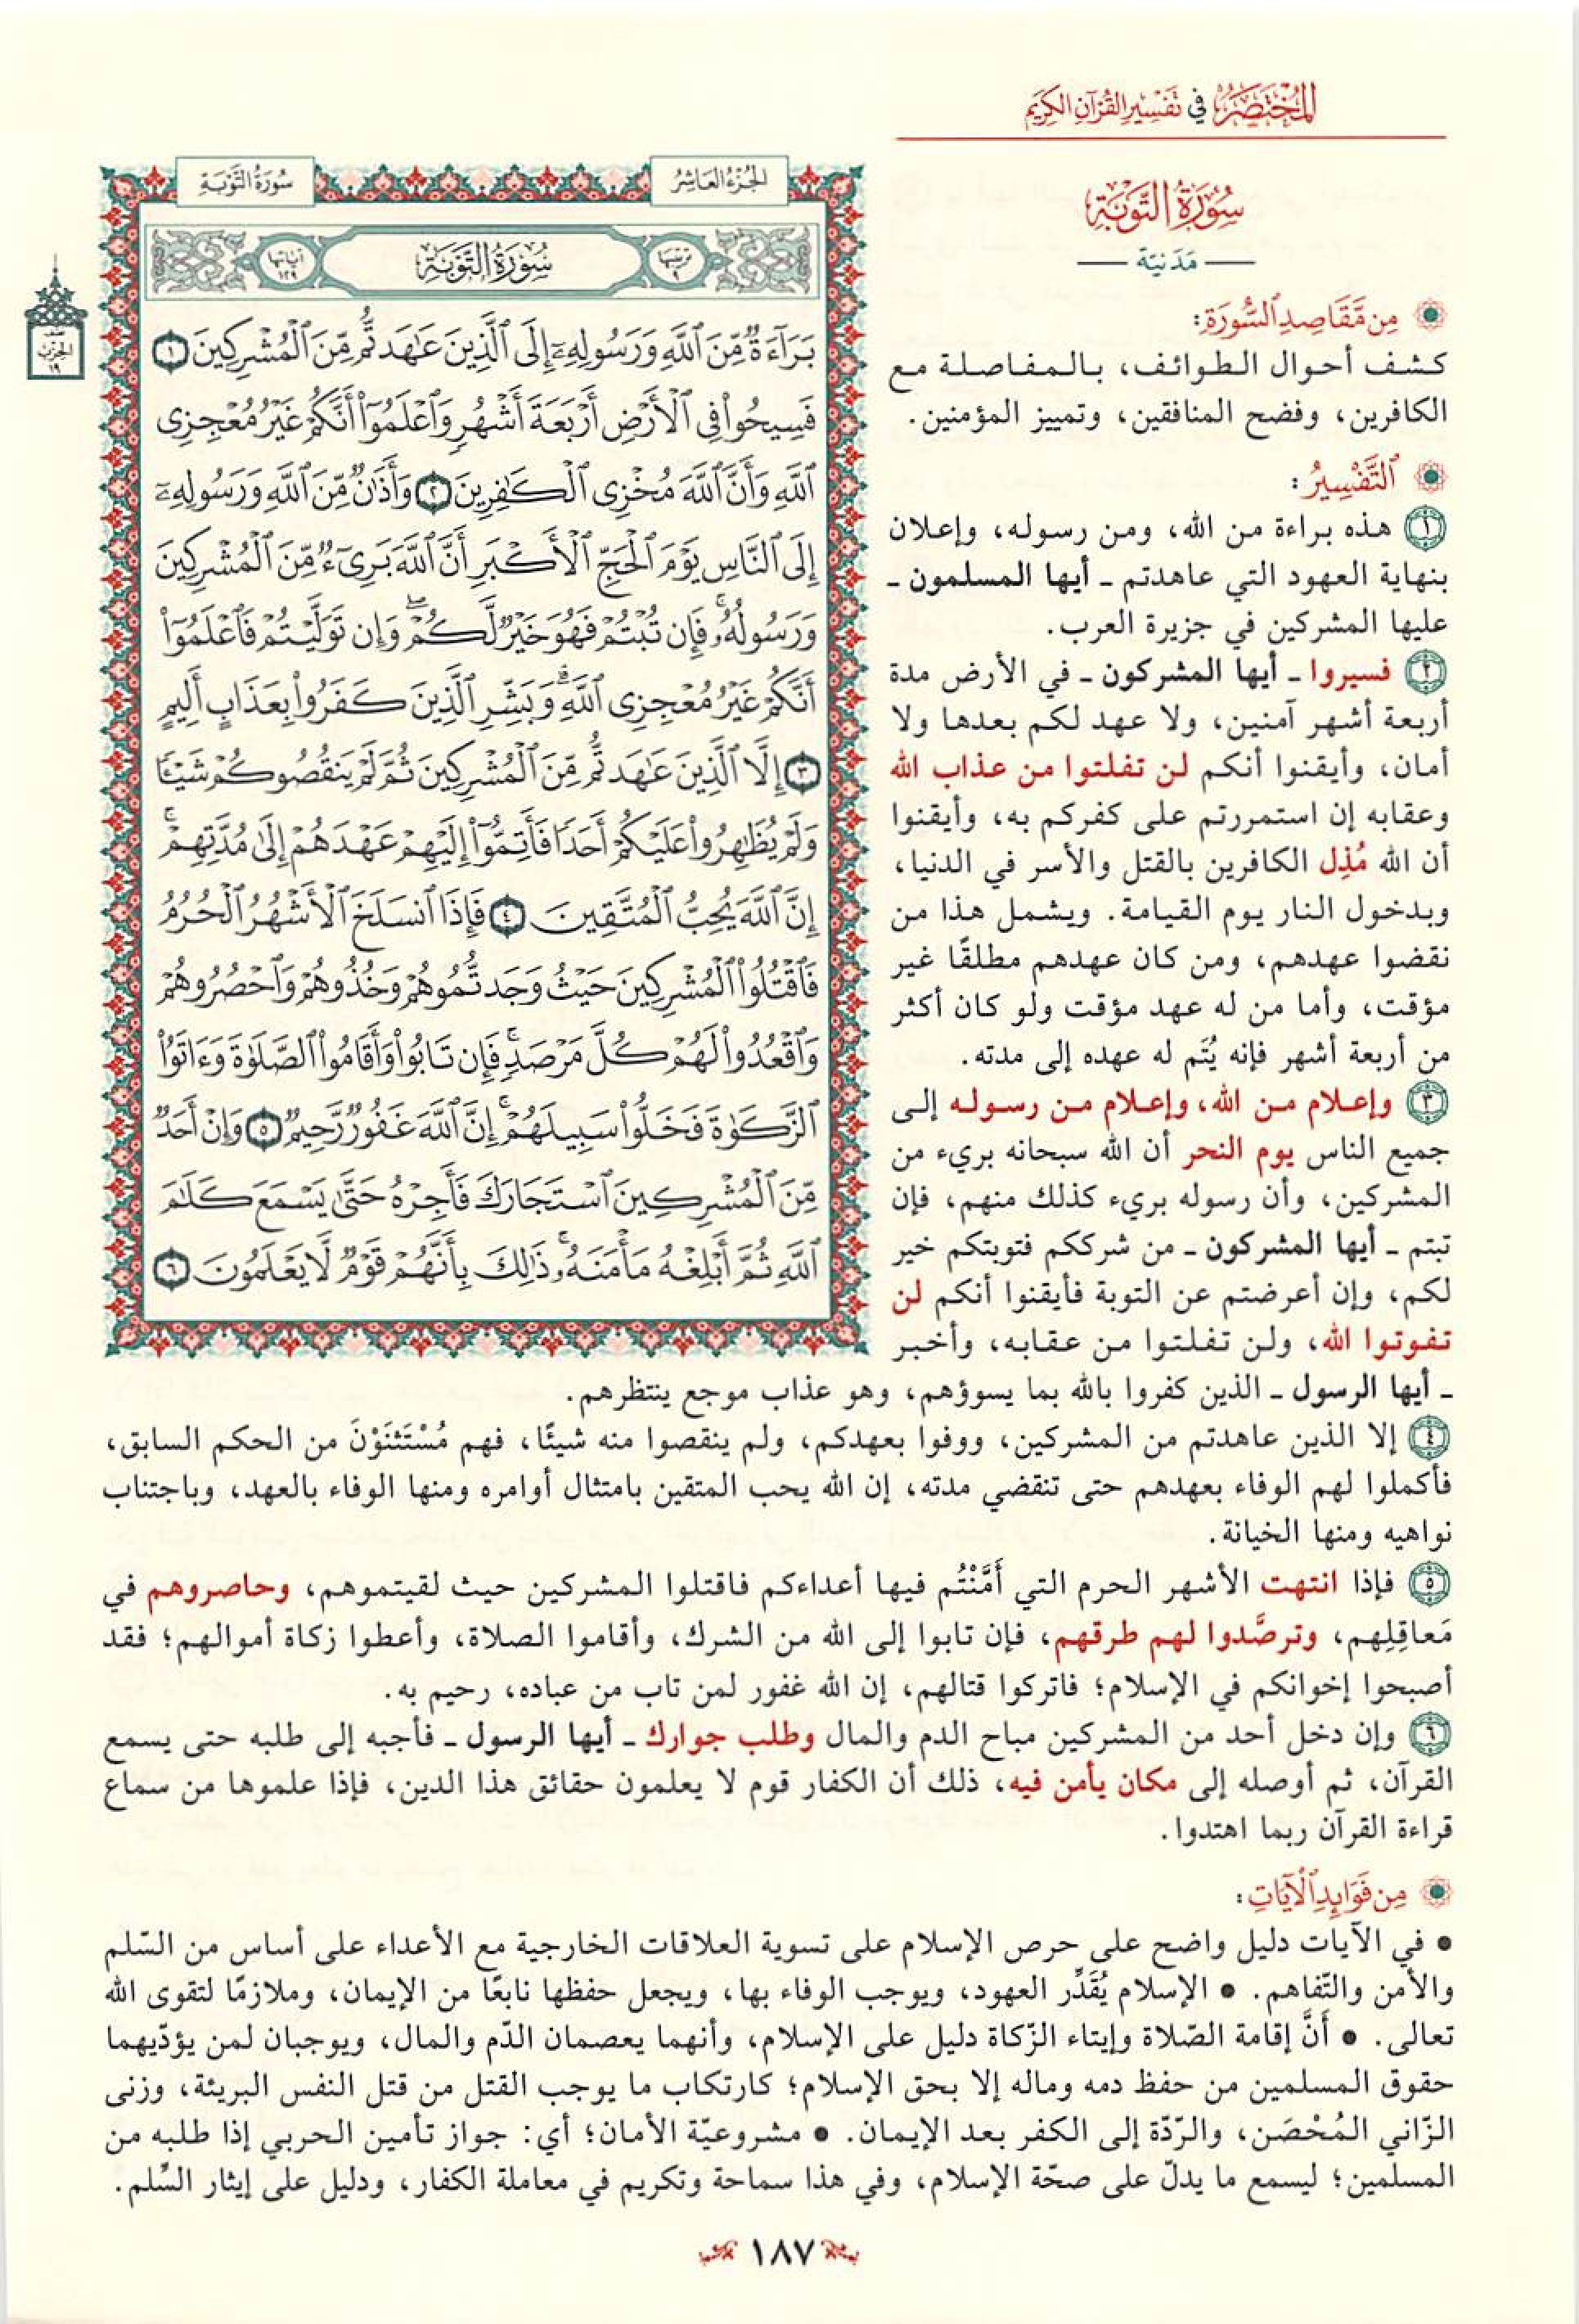 المُخْتَصَرُ في تَفْسِيرِ القُرْآنِ الكَرِيمِ
سُورَةُ التَّوْبَةِ
مَدَنيّة
من مَّقَاصِدِ السُّورَةِ:
كشف أحوال الطوائف، بالمفاصلة مع
الكافرين، وفضح المنافقين، وتمييز المؤمنين.
التَّفْسِيرُ:
١ هذه براءة من الله، ومن رسوله، وإعلان
بنهاية العهود التي عاهدتم ـ أيها المسلمون ـ
عليها المشركين في جزيرة العرب.
٢ فسيروا ـ أيها المشركون ـ في الأرض مدة
أربعة أشهر آمنين، ولا عهد لكم بعدها ولا
أمان، وأيقنوا أنكم لن تفلتوا من عذاب الله
وعقابه إن استمررتم على كفركم به، وأيقنوا
أن الله مُذِل الكافرين بالقتل والأسر في الدنيا،
وبدخول النار يوم القيامة. ويشمل هذا من
نقضوا عهدهم، ومن كان عهدهم مطلقًا غير
مؤقت، وأما من له عهد مؤقت ولو كان أكثر
من أربعة أشهر فإنه يُتَم له عهده إلى مدته.
٣ وإعلام من الله، وإعلام من رسوله إلى
جميع الناس يوم النحر أن الله سبحانه بريء من
المشركين، وأن رسوله بريء كذلك منهم، فإن
تبتم ـ أيها المشركون ـ من شرككم فتوبتكم خير
لكم، وإن أعرضتم عن التوبة فأيقنوا أنكم لن
تفوتوا الله، ولن تفلتوا من عقابه، وأخبر
الجُزْءُ العَاشِرُ
سُورَةُ التَّوْبَةِ
ترتيبها ٩
سُورَةُ التَّوْبَةِ
آياتها ١٢٩
نصف الحزب ١٩
بَرَآءَةٌ مِّنَ ٱللَّهِ وَرَسُولِهِۦٓ إِلَى ٱلَّذِينَ عَٰهَدتُّم مِّنَ ٱلْمُشْرِكِينَ ١
فَسِيحُوا۟ فِى ٱلْأَرْضِ أَرْبَعَةَ أَشْهُرٍ وَٱعْلَمُوٓا۟ أَنَّكُمْ غَيْرُ مُعْجِزِى
ٱللَّهِ وَأَنَّ ٱللَّهَ مُخْزِى ٱلْكَٰفِرِينَ ٢ وَأَذَٰنٌ مِّنَ ٱللَّهِ وَرَسُولِهِۦٓ
إِلَى ٱلنَّاسِ يَوْمَ ٱلْحَجِّ ٱلْأَكْبَرِ أَنَّ ٱللَّهَ بَرِىٓءٌ مِّنَ ٱلْمُشْرِكِينَ
وَرَسُولُهُۥ ۚ فَإِن تُبْتُمْ فَهُوَ خَيْرٌ لَّكُمْ ۖ وَإِن تَوَلَّيْتُمْ فَٱعْلَمُوٓا۟
أَنَّكُمْ غَيْرُ مُعْجِزِى ٱللَّهِ ۗ وَبَشِّرِ ٱلَّذِينَ كَفَرُوا۟ بِعَذَابٍ أَلِيمٍ
٣ إِلَّا ٱلَّذِينَ عَٰهَدتُّم مِّنَ ٱلْمُشْرِكِينَ ثُمَّ لَمْ يَنقُصُوكُمْ شَيْـًٔا
وَلَمْ يُظَٰهِرُوا۟ عَلَيْكُمْ أَحَدًا فَأَتِمُّوٓا۟ إِلَيْهِمْ عَهْدَهُمْ إِلَىٰ مُدَّتِهِمْ ۚ
إِنَّ ٱللَّهَ يُحِبُّ ٱلْمُتَّقِينَ ٤ فَإِذَا ٱنسَلَخَ ٱلْأَشْهُرُ ٱلْحُرُمُ
فَٱقْتُلُوا۟ ٱلْمُشْرِكِينَ حَيْثُ وَجَدتُّمُوهُمْ وَخُذُوهُمْ وَٱحْصُرُوهُمْ
وَٱقْعُدُوا۟ لَهُمْ كُلَّ مَرْصَدٍ ۚ فَإِن تَابُوا۟ وَأَقَامُوا۟ ٱلصَّلَوٰةَ وَءَاتَوُا۟
ٱلزَّكَوٰةَ فَخَلُّوا۟ سَبِيلَهُمْ ۚ إِنَّ ٱللَّهَ غَفُورٌ رَّحِيمٌ ٥ وَإِنْ أَحَدٌ
مِّنَ ٱلْمُشْرِكِينَ ٱسْتَجَارَكَ فَأَجِرْهُ حَتَّىٰ يَسْمَعَ كَلَٰمَ
ٱللَّهِ ثُمَّ أَبْلِغْهُ مَأْمَنَهُۥ ۚ ذَٰلِكَ بِأَنَّهُمْ قَوْمٌ لَّا يَعْلَمُونَ ٦
ـ أيها الرسول ـ الذين كفروا بالله بما يسوؤهم، وهو عذاب موجع ينتظرهم.
٤ إلا الذين عاهدتم من المشركين، ووفوا بعهدكم، ولم ينقصوا منه شيئًا، فهم مُسْتَثنَوْنَ من الحكم السابق،
فأكملوا لهم الوفاء بعهدهم حتى تنقضي مدته، إن الله يحب المتقين بامتثال أوامره ومنها الوفاء بالعهد، وباجتناب
نواهيه ومنها الخيانة.
٥ فإذا انتهت الأشهر الحرم التي أَمَّنْتُم فيها أعداءكم فاقتلوا المشركين حيث لقيتموهم، وحاصروهم في
مَعاقِلِهم، وترصَّدوا لهم طرقهم، فإن تابوا إلى الله من الشرك، وأقاموا الصلاة، وأعطوا زكاة أموالهم؛ فقد
أصبحوا إخوانكم في الإسلام؛ فاتركوا قتالهم، إن الله غفور لمن تاب من عباده، رحيم به.
٦ وإن دخل أحد من المشركين مباح الدم والمال وطلب جوارك ـ أيها الرسول ـ فأجبه إلى طلبه حتى يسمع
القرآن، ثم أوصله إلى مكان يأمن فيه، ذلك أن الكفار قوم لا يعلمون حقائق هذا الدين، فإذا علموها من سماع
قراءة القرآن ربما اهتدوا.
مِن فَوَائِدِ الْآيَاتِ:
• في الآيات دليل واضح على حرص الإسلام على تسوية العلاقات الخارجية مع الأعداء على أساس من السّلم
والأمن والتّفاهم. • الإسلام يُقَدِّر العهود، ويوجب الوفاء بها، ويجعل حفظها نابعًا من الإيمان، وملازمًا لتقوى الله
تعالى. • أَنَّ إقامة الصّلاة وإيتاء الزّكاة دليل على الإسلام، وأنهما يعصمان الدّم والمال، ويوجبان لمن يؤدّيهما
حقوق المسلمين من حفظ دمه وماله إلا بحق الإسلام؛ كارتكاب ما يوجب القتل من قتل النفس البريئة، وزنى
الزّاني المُحْصَن، والرّدّة إلى الكفر بعد الإيمان. • مشروعيّة الأمان؛ أي: جواز تأمين الحربي إذا طلبه من
المسلمين؛ ليسمع ما يدلّ على صحّة الإسلام، وفي هذا سماحة وتكريم في معاملة الكفار، ودليل على إيثار السِّلم.
١٨٧